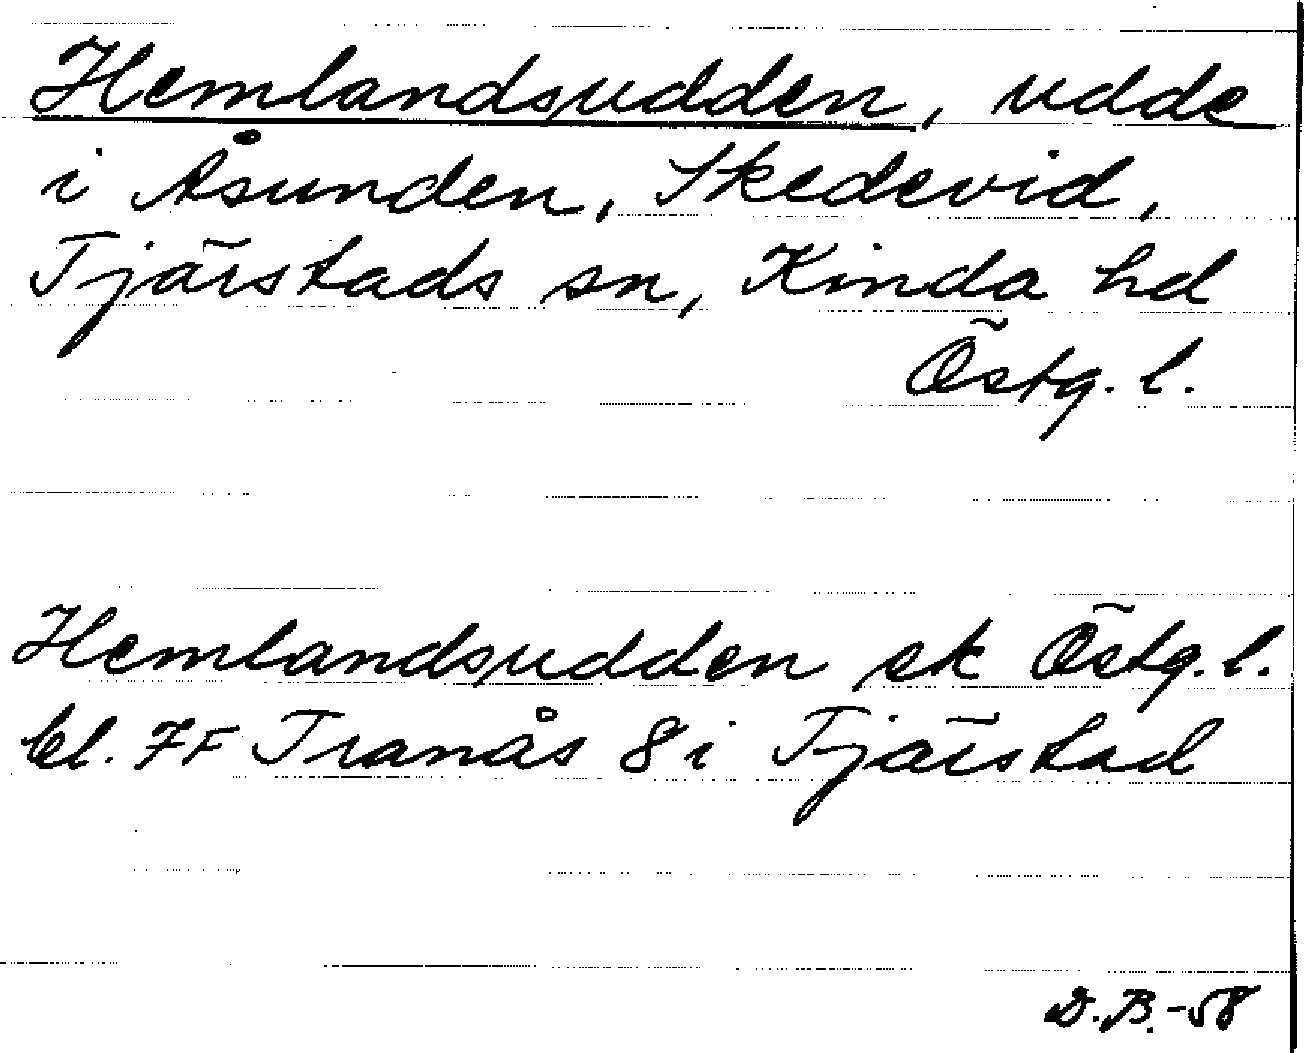 Hemlandsudden, udde
i Åsunden, Skedevid,
Tjärstads sn, Kinda hd
Östg. l.
Hemlandsudden ek Östg. l.
bl. 7F Tranås 8 i Tjärstad
D.B.-58